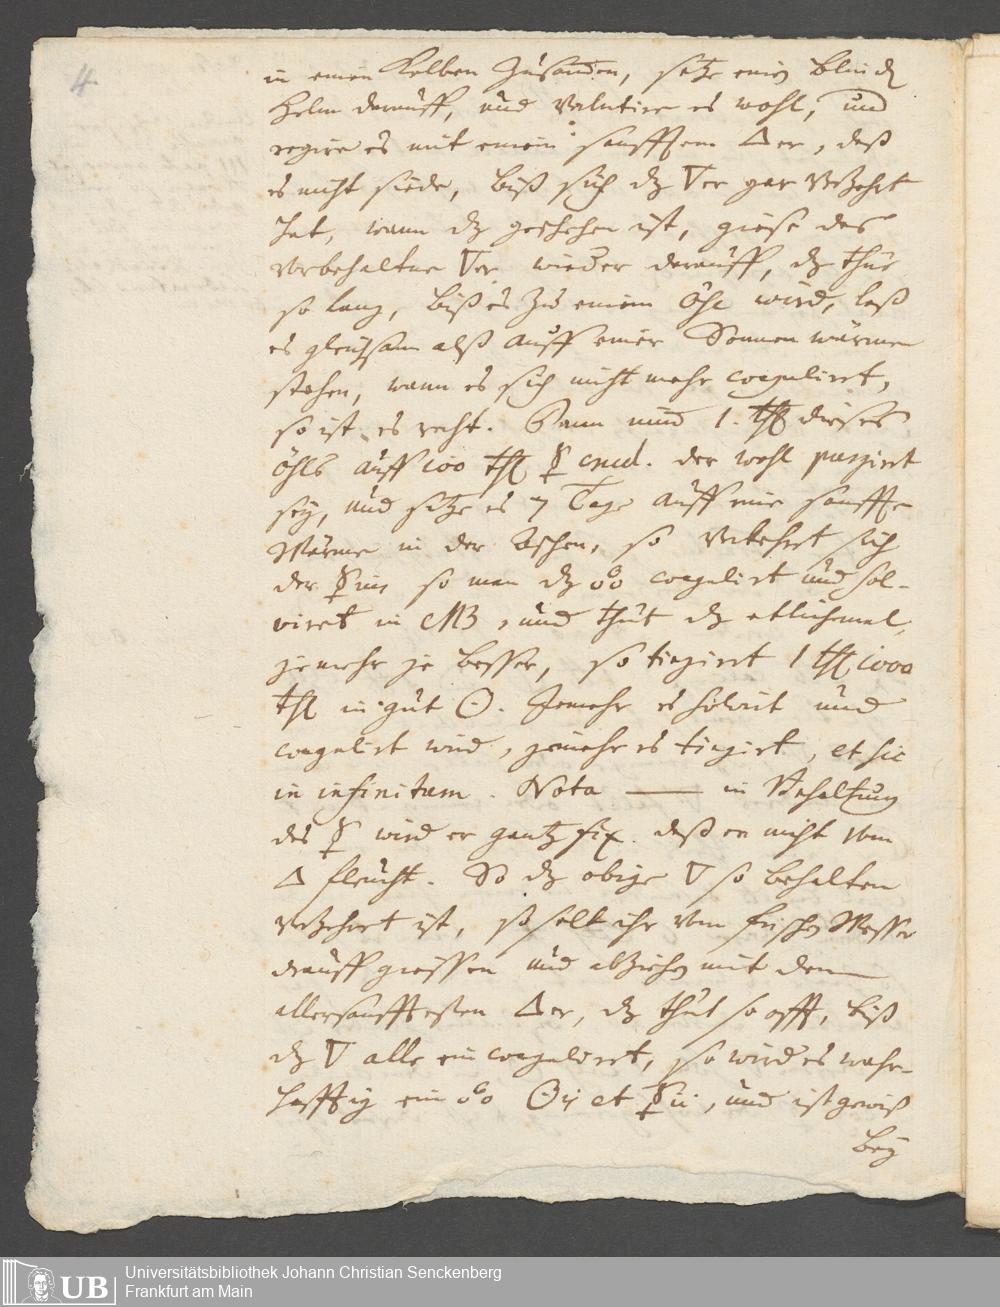 4
in einen Kolben zusammen, setze einen blinden
Helm darauff, und verlutire es wohl, und
regire es mit einem sanfften △er, daß
es nicht siede, biß sich dz ▽er gar verzehrt
hat, wann dz geschehen ist, giese das
vorbehaltne ▽er wieder darauff, dz thue
so lang, biß es zu einem Öhl wird, laß
es gleichsam alß auff einer Sonnen wärme
stehen, wann es sich nicht mehr coagulirt,
so ist es recht. Dann nimb 1. ℔ dieses
Öhls auff 100 ℔ ☿ crud. der wohl purgirt
sey, und setze es 7 Tage auff eine sanffte
Wärme in der Aschen, so verkehrt sich
der ☿ius so man dz coagulirt und sol-
virt in MB, und thut dz etlichemal,
je mehr je besser, so tingirt 1 ℔ 1000
℔ in gut ☉. Jemehr es solvirt und
coagulirt wird, jemehr es tingirt, et sic
in infinitum. Nota —— in Behaltung
des ☿ wird er gantz fix. daß er nicht vom
△ fleucht. So dz obige ▽ so behalten
verzehrt ist, so solt ihr vom frischen Wasser
drauff giessen und abziehen mit dem
allersanfftesten △er, dz thut so offt, biß
dz ▽ alle ein coagulirt, so wird es wahr-
hafftig ein ☉ii et ☿ii, und ist gewiß
bey
UB
Universitätsbibliothek Johann Christian Senckenberg
Frankfurt am Main